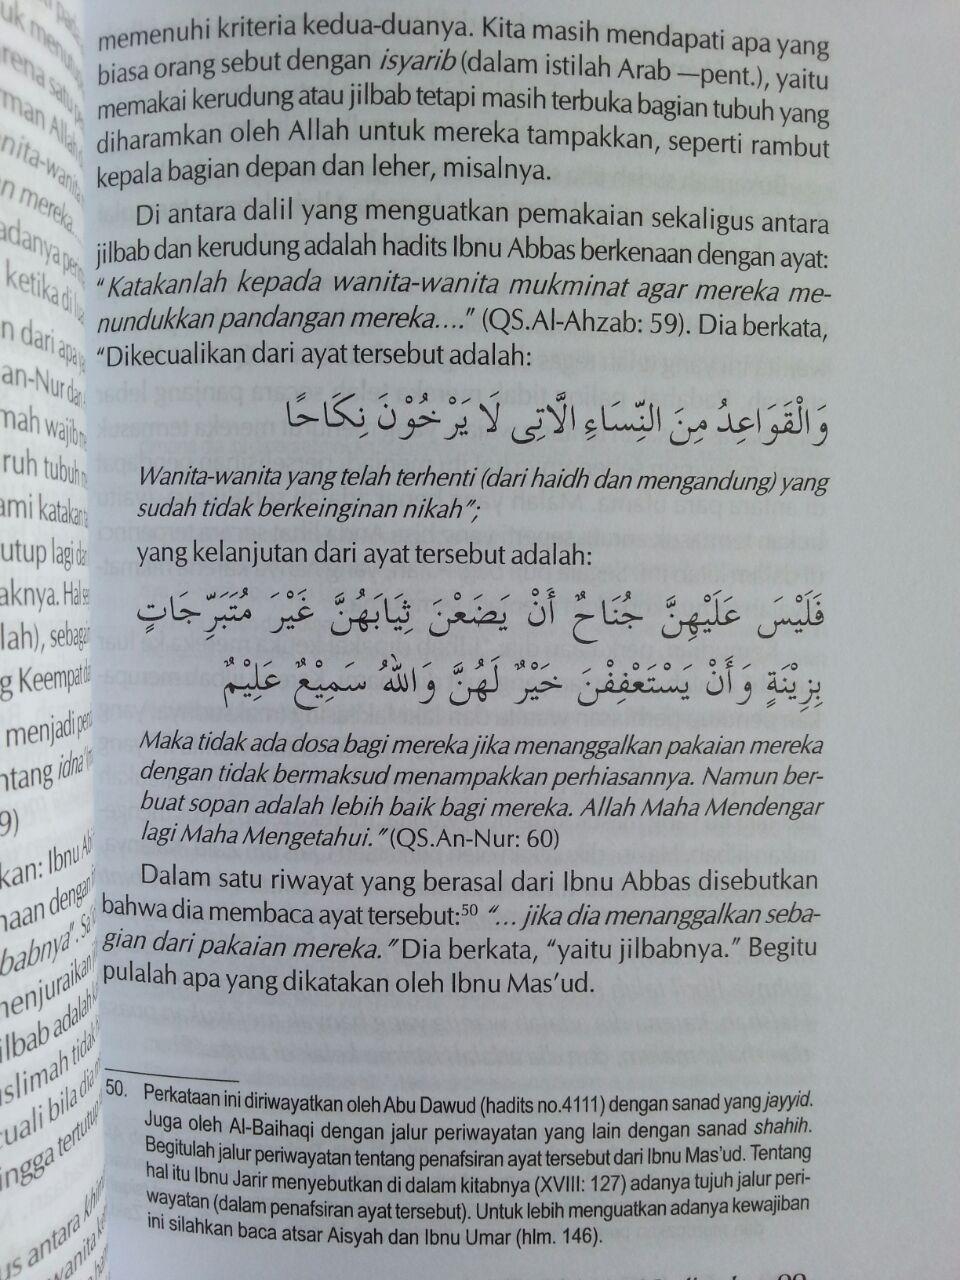 memenuhi kriteria kedua-duanya. Kita masih mendapati apa yang
biasa orang sebut dengan isyarib (dalam istilah Arab —pent.), yaitu
memakai kerudung atau jilbab tetapi masih terbuka bagian tubuh yang
diharamkan oleh Allah untuk mereka tampakkan, seperti rambut
kepala bagian depan dan leher, misalnya.
Di antara dalil yang menguatkan pemakaian sekaligus antara
jilbab dan kerudung adalah hadits Ibnu Abbas berkenaan dengan ayat:
“Katakanlah kepada wanita-wanita mukminat agar mereka me-
nundukkan pandangan mereka….” (QS.Al-Ahzab: 59). Dia berkata,
“Dikecualikan dari ayat tersebut adalah:
وَالْقَوَاعِدُ مِنَ النِّسَاءِ الَّاتِى لَا يَرْخُوْنَ نِكَاحًا
Wanita-wanita yang telah terhenti (dari haidh dan mengandung) yang
sudah tidak berkeinginan nikah”;
yang kelanjutan dari ayat tersebut adalah:
فَلَيْسَ عَلَيْهِنَّ جُنَاحٌ أَنْ يَضَعْنَ ثِيَابَهُنَّ غَيْرَ مُتَبَرِّجَاتٍ
بِزِيْنَةٍ وَأَنْ يَسْتَعْفِفْنَ خَيْرٌ لَهُنَّ وَاللهُ سَمِيْعٌ عَلِيْمٌ
Maka tidak ada dosa bagi mereka jika menanggalkan pakaian mereka
dengan tidak bermaksud menampakkan perhiasannya. Namun ber-
buat sopan adalah lebih baik bagi mereka. Allah Maha Mendengar
lagi Maha Mengetahui.” (QS.An-Nur: 60)
Dalam satu riwayat yang berasal dari Ibnu Abbas disebutkan
bahwa dia membaca ayat tersebut:50 “… jika dia menanggalkan seba-
gian dari pakaian mereka.” Dia berkata, “yaitu jilbabnya.” Begitu
pulalah apa yang dikatakan oleh Ibnu Mas’ud.
50. Perkataan ini diriwayatkan oleh Abu Dawud (hadits no.4111) dengan sanad yang jayyid.
Juga oleh Al-Baihaqi dengan jalur periwayatan yang lain dengan sanad shahih.
Begitulah jalur periwayatan tentang penafsiran ayat tersebut dari Ibnu Mas’ud. Tentang
hal itu Ibnu Jarir menyebutkan di dalam kitabnya (XVIII: 127) adanya tujuh jalur peri-
wayatan (dalam penafsiran ayat tersebut). Untuk lebih menguatkan adanya kewajiban
ini silahkan baca atsar Aisyah dan Ibnu Umar (hlm. 146).